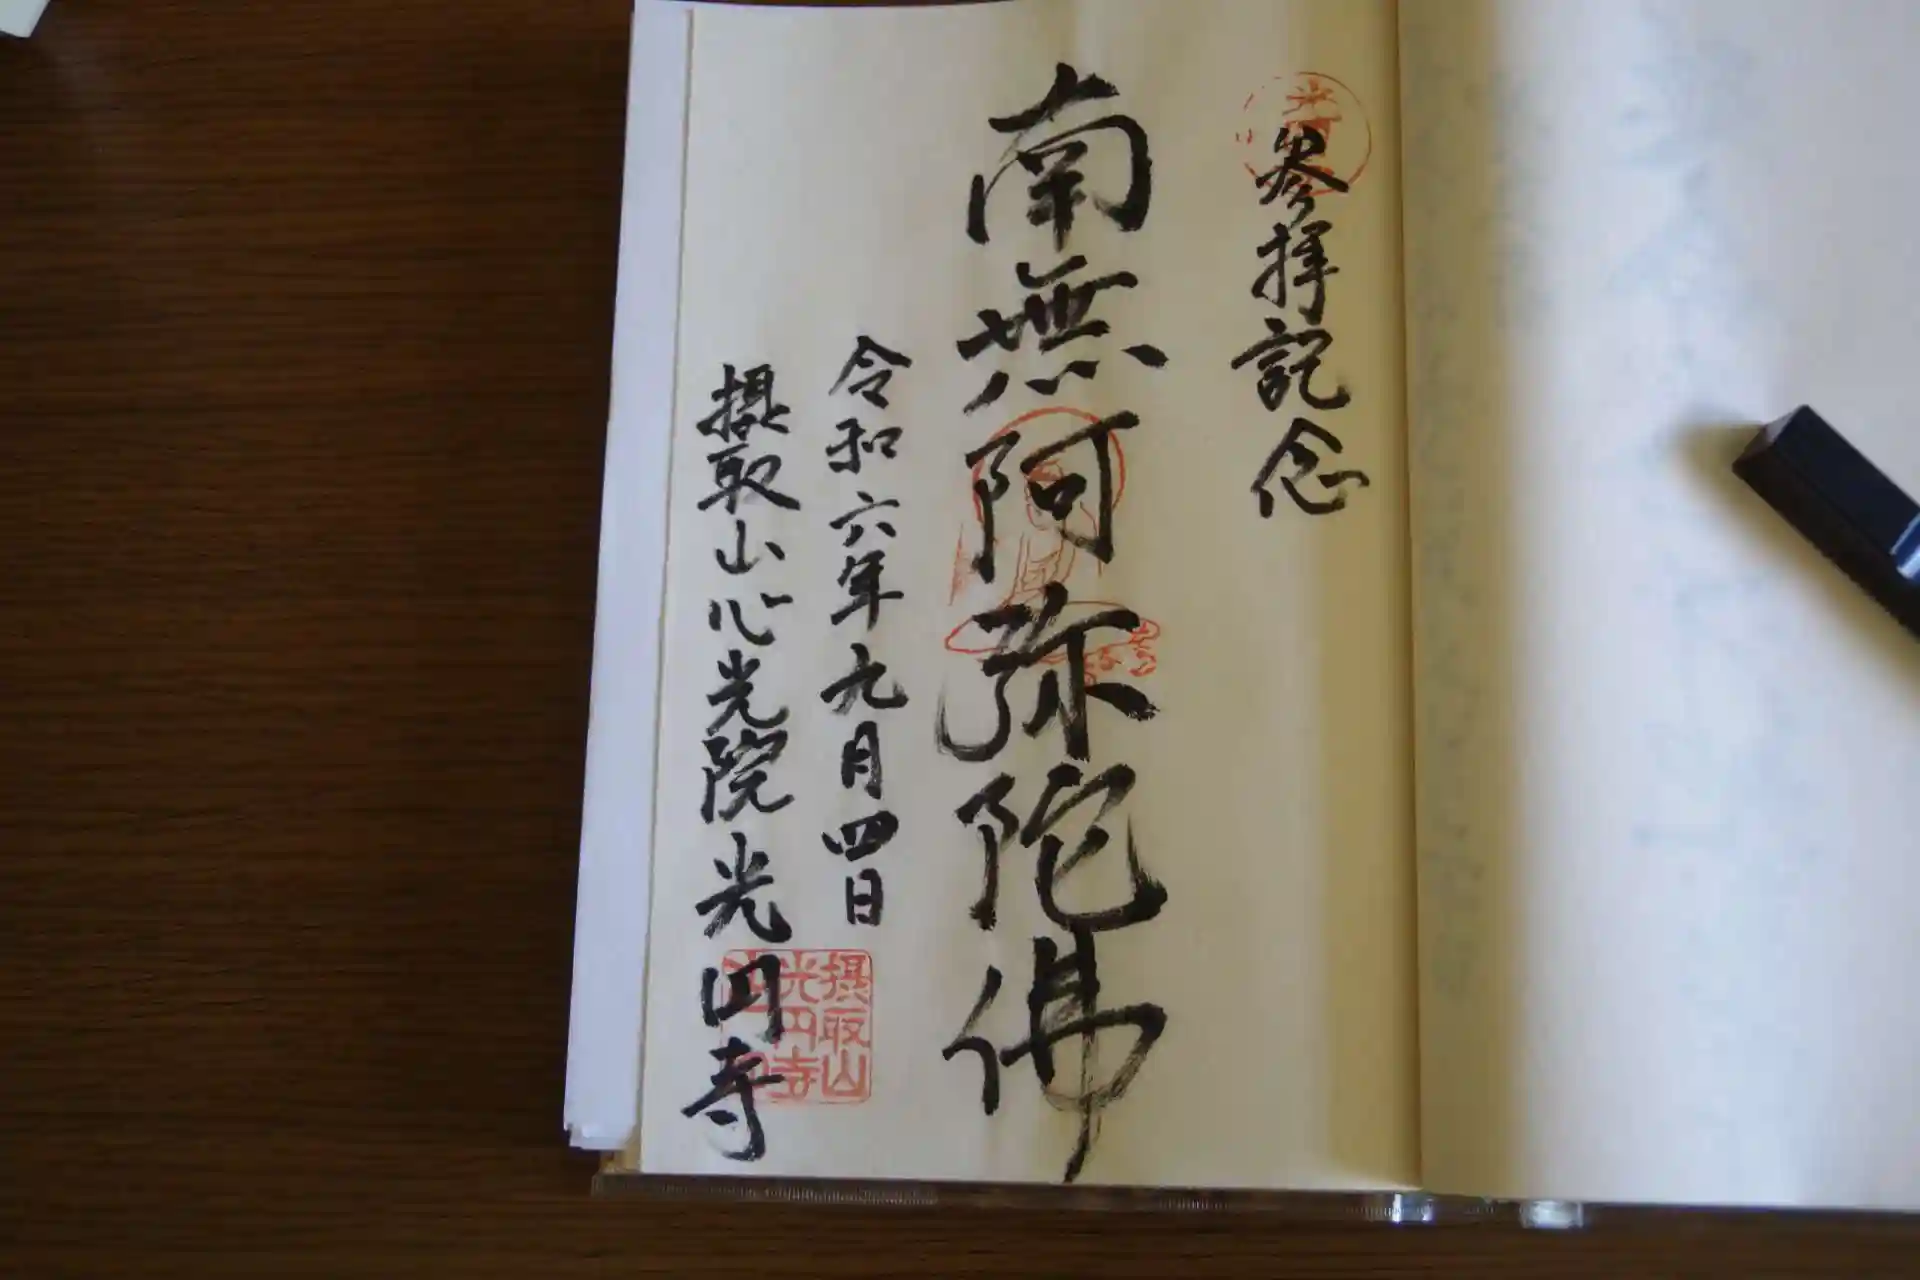 參拝記念
南無阿弥陀佛
令和六年九月四日
摂取山心光院光円寺
摂取山
光円寺